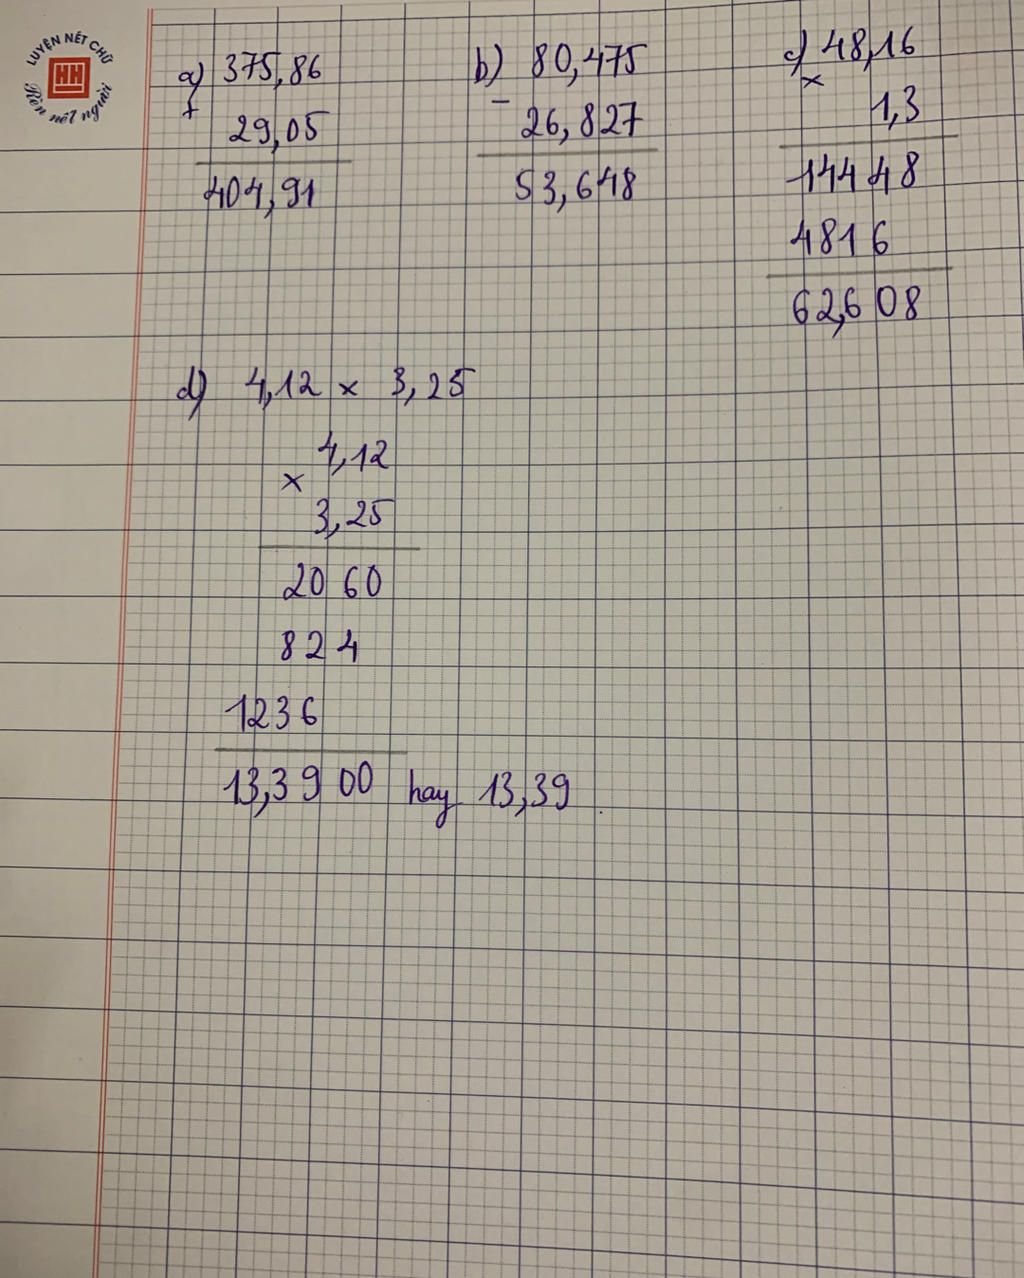 LUYỆN NÉT CHỮ
HH
Rèn nết người
a) 375,86
+
29,05
404,91
b) 80,475
-
26,827
53,648
c) 48,16
×
1,3
14448
4816
62,608
d) 4,12 × 3,25
4,12
×
3,25
2060
824
1236
13,3900 hay 13,39